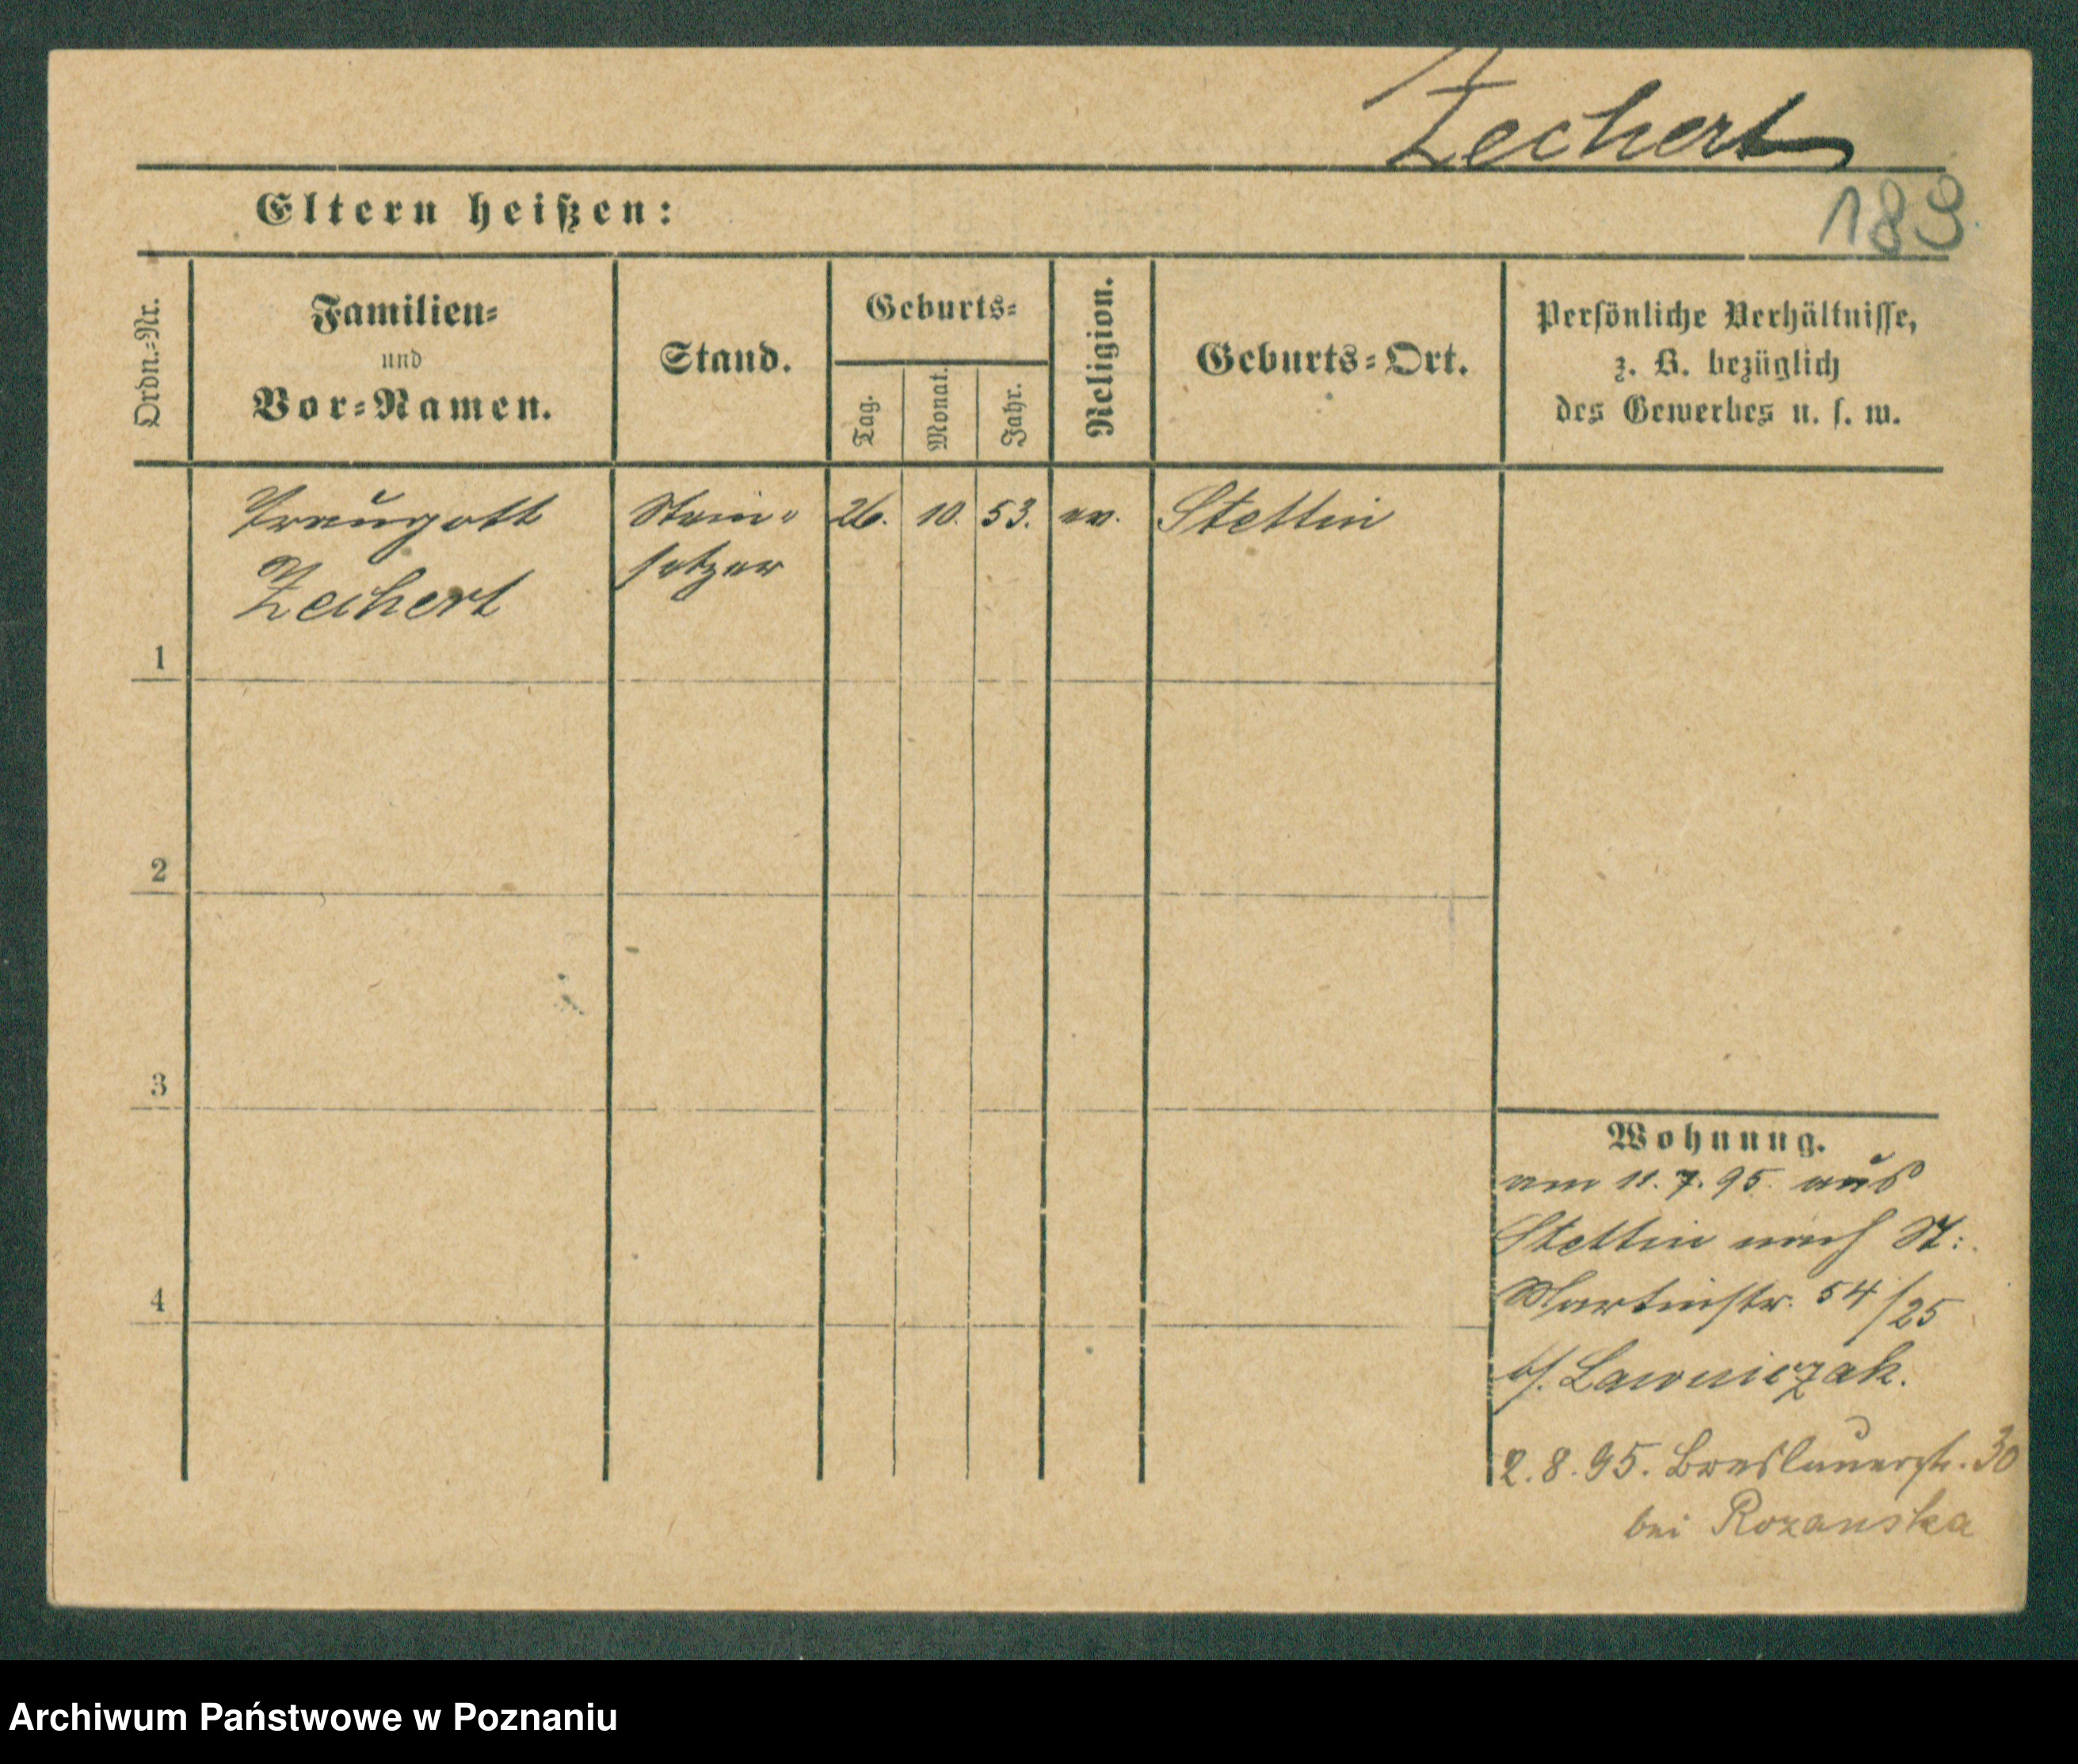 Zechert
189.
Eltern heißen:
Ordn.=Nr.
Familien=
und
Vor=Namen.
Stand.
Geburts=
Tag.
Monat.
Jahr.
Religion.
Geburts=Ort.
Persönliche Verhältnisse,
z. B. bezüglich
des Gewerbes u. s. w.
1
Traugott
Zechert
Stein=
setzer
26. 10. 53. ev. Stettin
2
3
4
Wohnung.
am 11. 7. 95. aus
Stettin nach St:
Martinstr. 54/25
b/. Lawniczak.
2. 8. 95. Breslauerstr. 30
bei Rozanska
Archiwum Państwowe w Poznaniu